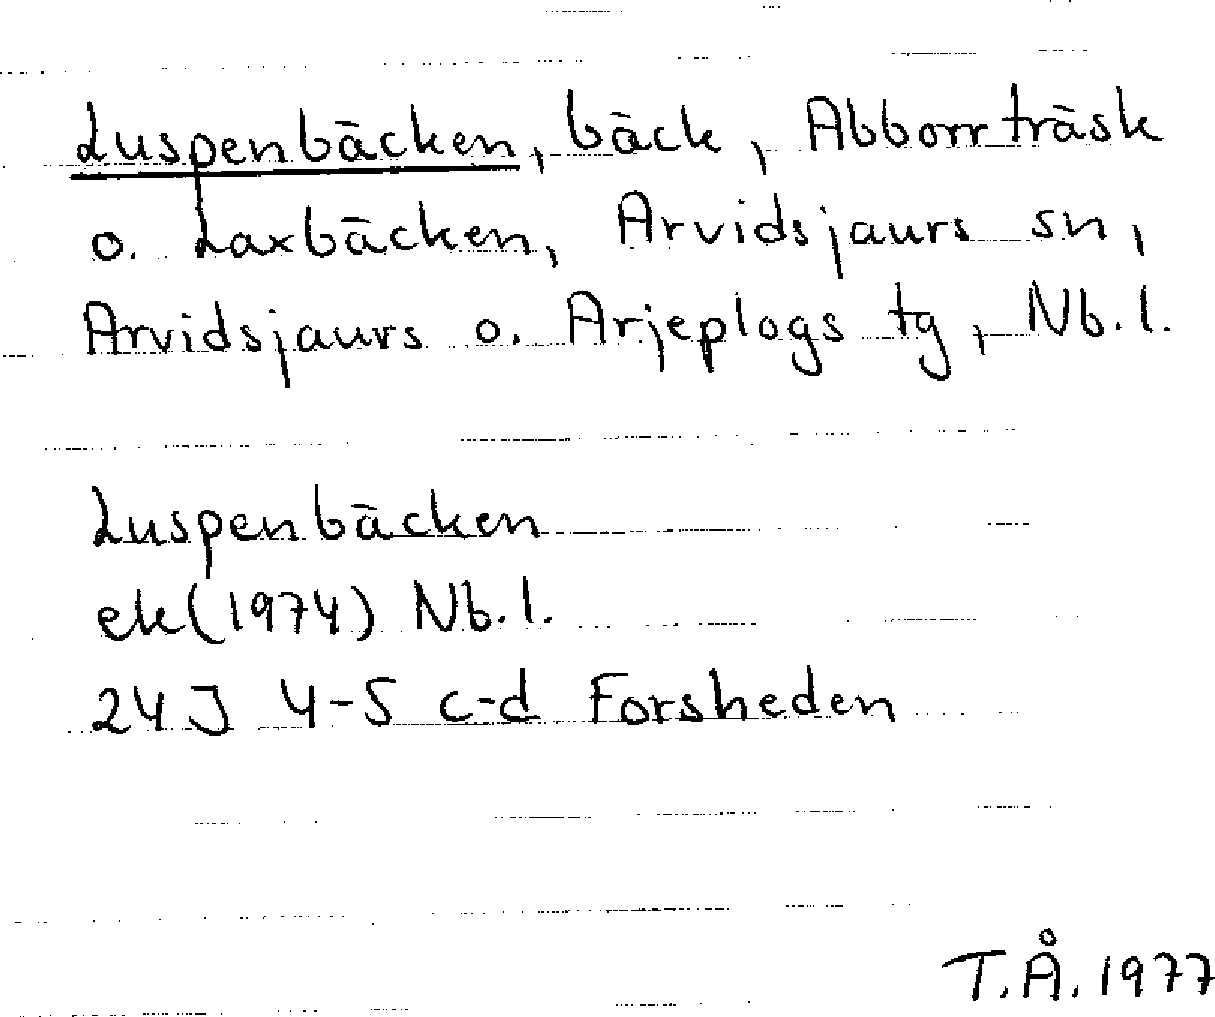 Luspenbäcken, bäck, Abborrträsk
o. Laxbäcken, Arvidsjaurs sn,
Arvidsjaurs o. Arjeplogs tg, Nb.l.
Luspenbäcken
ek(1974) Nb.l.
24J 4-5 c-d Forsheden
T.Å.1977